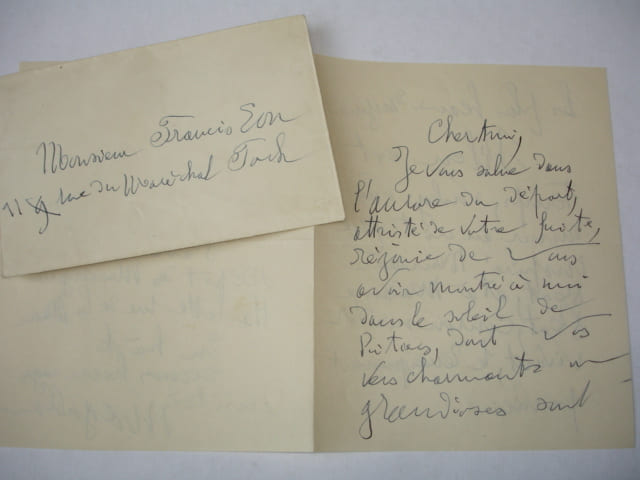 Monsieur Francis Eon
11 rue du Maréchal Foch
Cher Ami,
Je vous salue dans
l'aurore du départ,
attristé de votre fuite,
réjouie de vous
avoir montré à moi
dans le soleil de
dont vos
vers charmants
grandioses sont